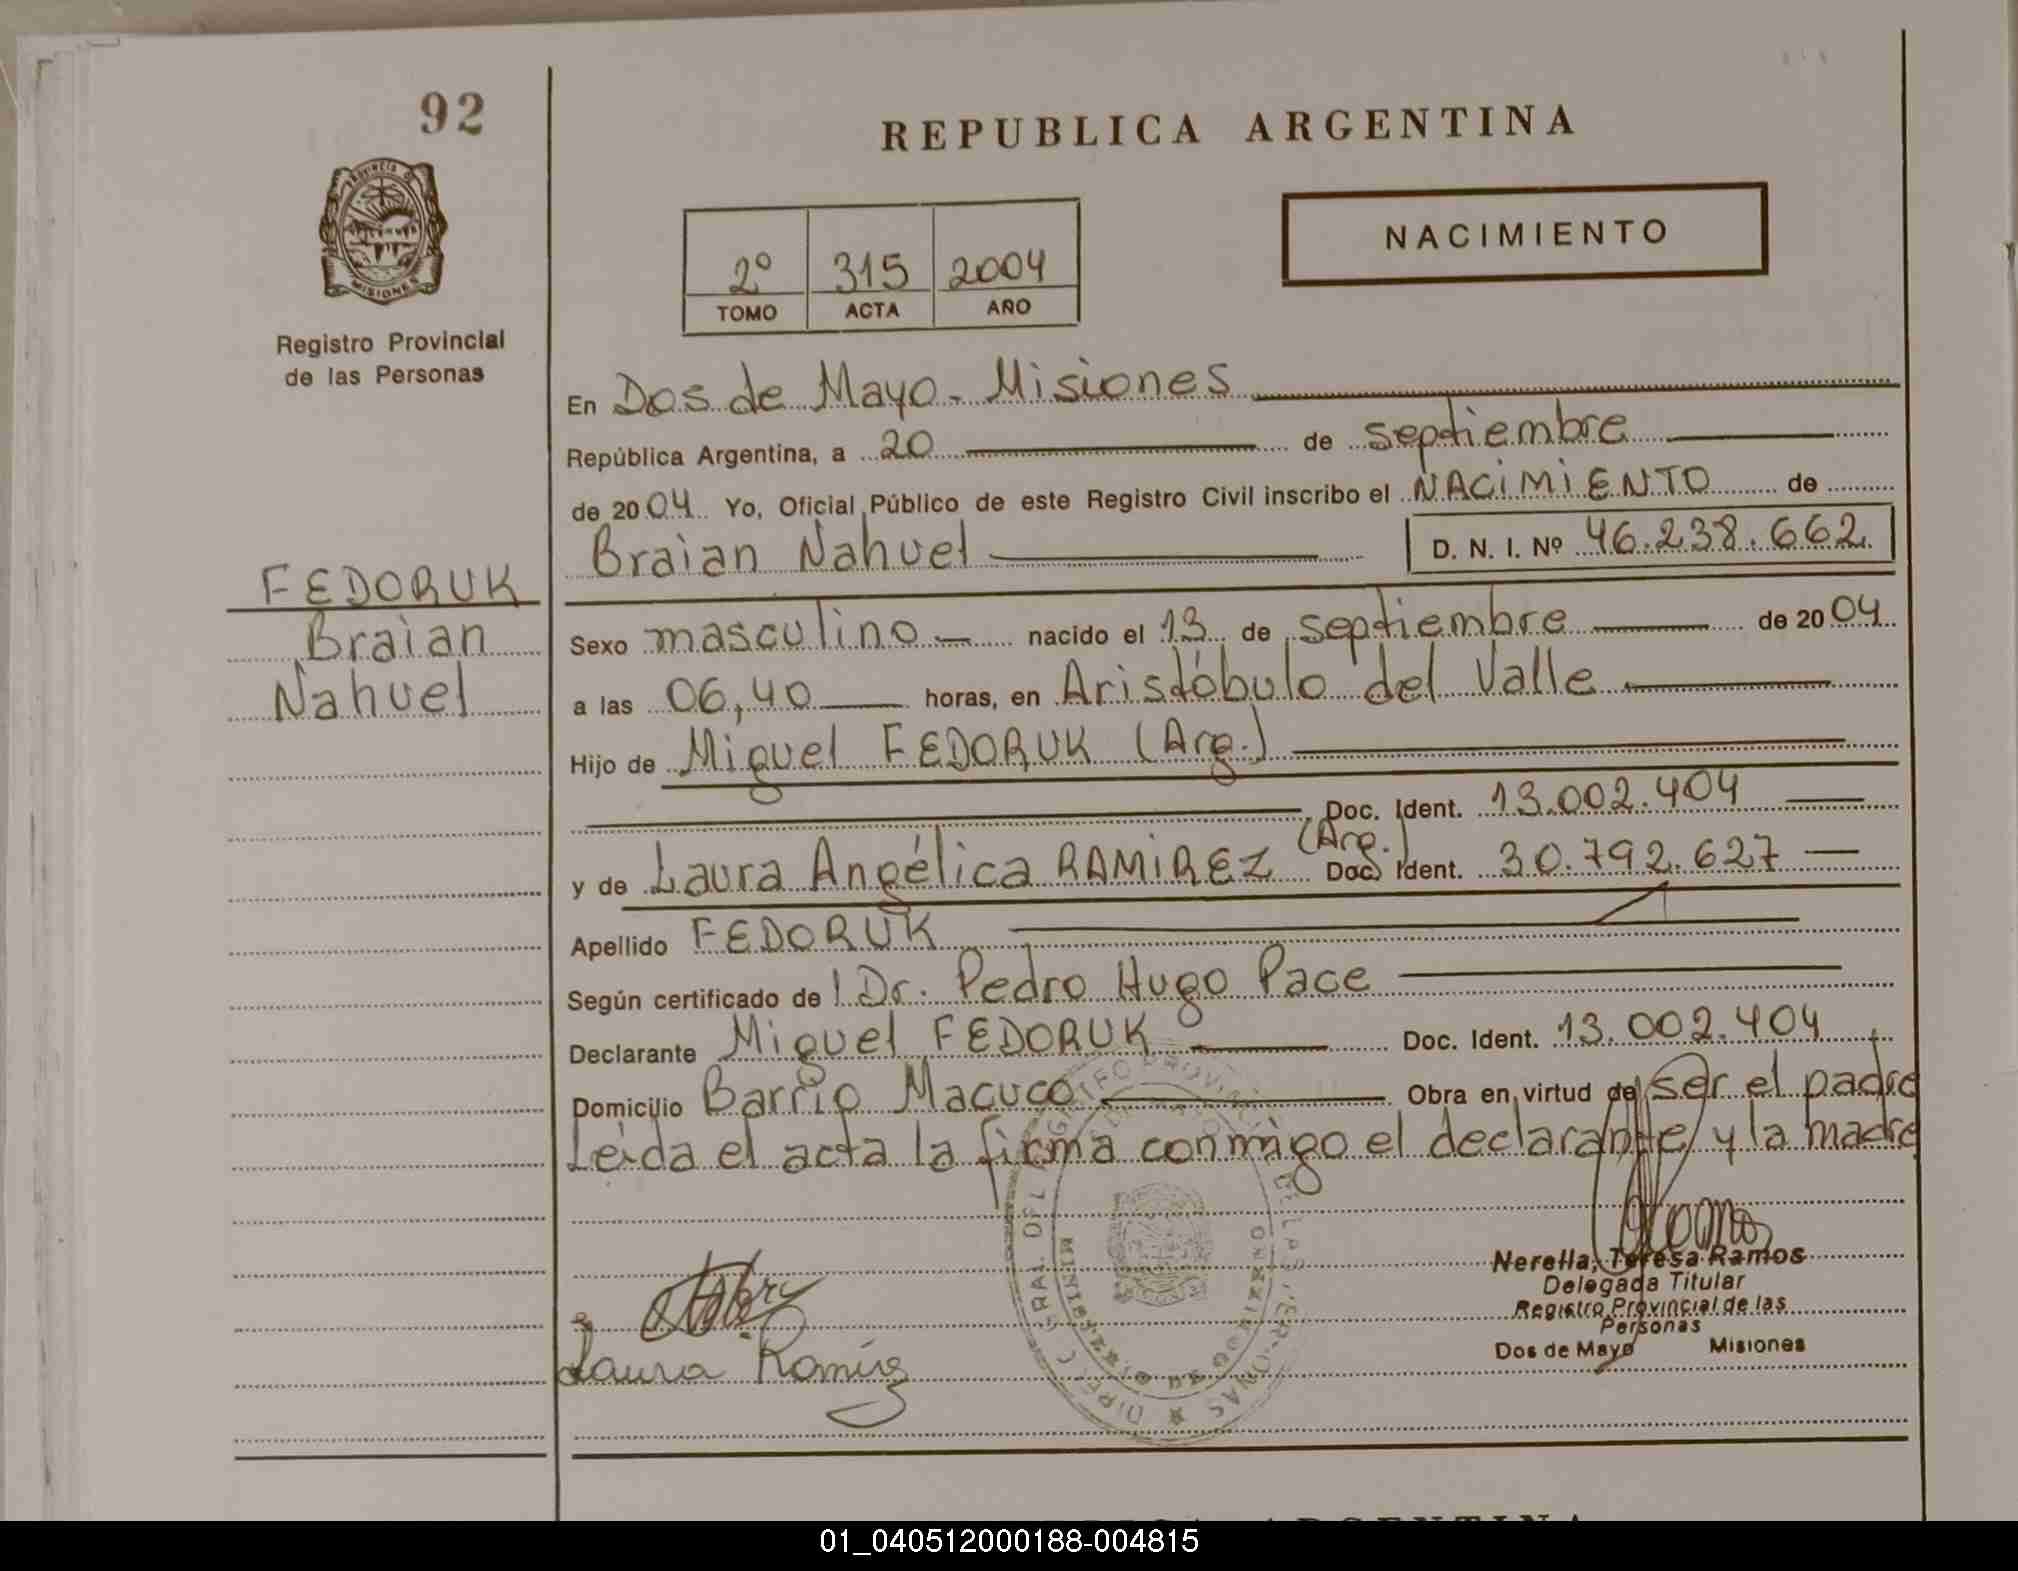 92
REPUBLICA ARGENTINA
PROVINCIA DE
MISIONES
Registro Provincial
de las Personas
NACIMIENTO
2º 315 2004
TOMO ACTA AÑO
En Dos de Mayo - Misiones
República Argentina, a 20 de septiembre
de 2004 Yo, Oficial Público de este Registro Civil inscribo el NACIMIENTO de
Braian Nahuel D. N. I. Nº 46.238.662
FEDORUK
Braian
Nahuel
Sexo masculino nacido el 13 de septiembre de 2004
a las 06,40 horas, en Aristóbulo del Valle
Hijo de Miguel FEDORUK (Arg.)
Doc. Ident. 13.002.404
y de Laura Angélica RAMIREZ (Arg.) Doc. Ident. 30.792.627
Apellido FEDORUK
Según certificado de l Dr. Pedro Hugo Pace
Declarante Miguel FEDORUK Doc. Ident. 13.002.404
Domicilio Barrio Macuco Obra en virtud de ser el padre
Leída el acta la firma conmigo el declarante y la madre
Nerella, Teresa Ramos
Delegada Titular
Registro Provincial de las
Personas
Dos de Mayo Misiones
Laura Ramírez
01_040512000188-004815